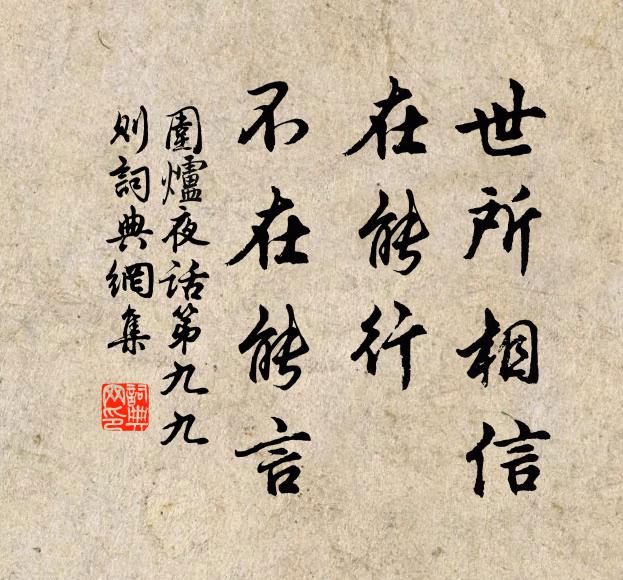 世所相信
在能行
不在能言
圍爐夜话第九九
则詞典網集
詞典
网印